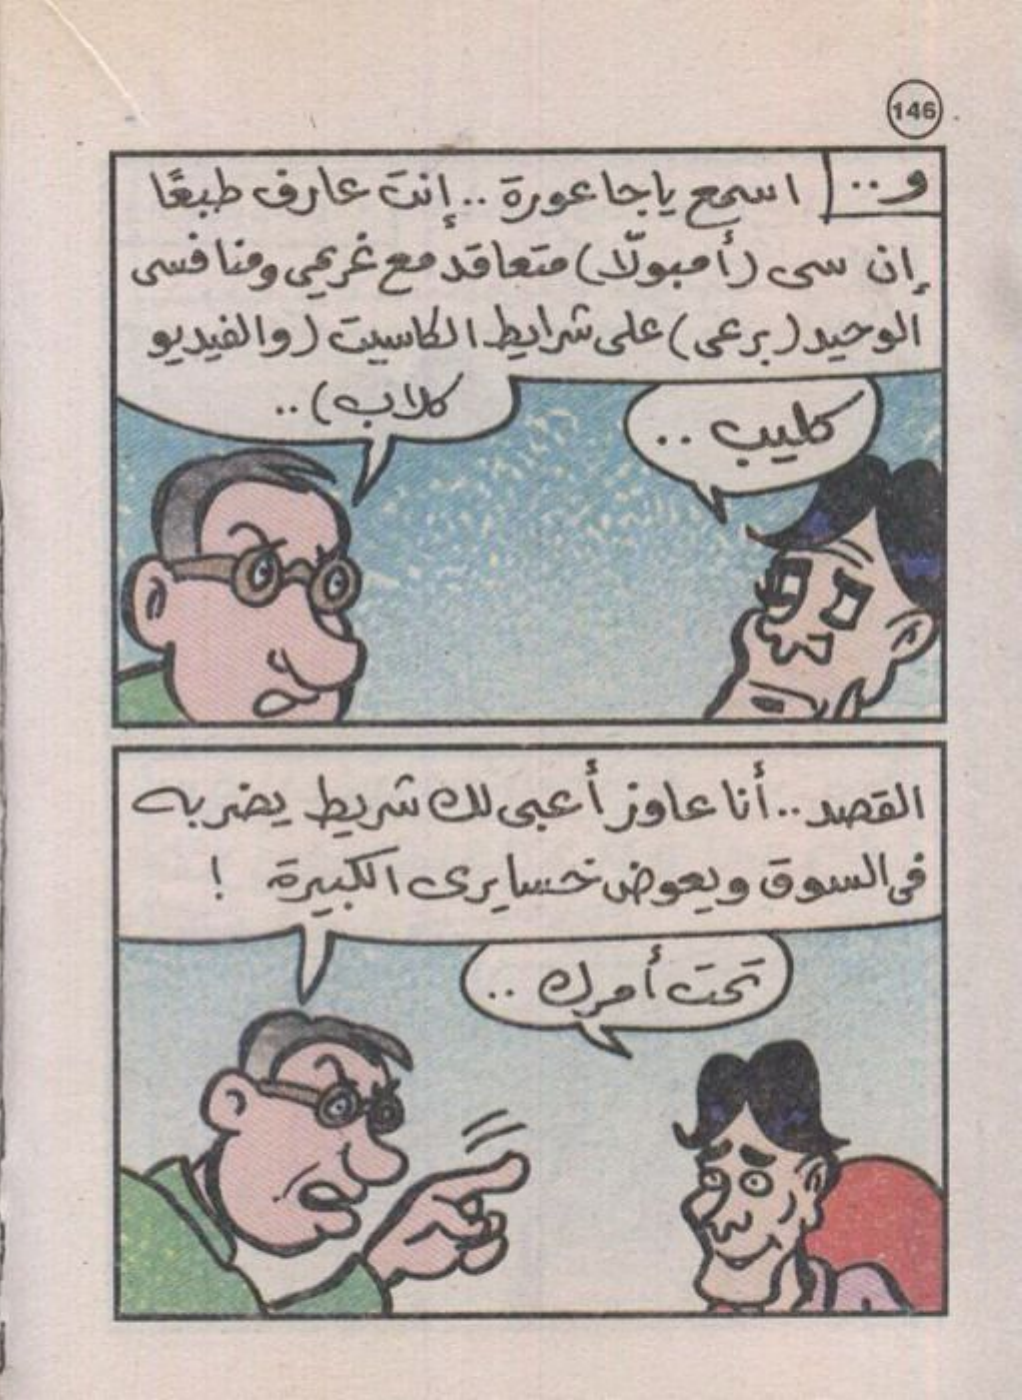 146
و..
اسمع ياجاعورة .. إنتَ عارف طبعًا
إن سى (أمبولّا) متعاقد مع غريمي ومنافسى
الوحيد (برعى) على شرايط الكاسيت (والفيديو
كلاب) ..
كليب ..
القصد .. أنا عاوز أعبى لك شريط يضربه
فى السوق ويعوض خسايرى الكبيرة !
تحت أمرك ..